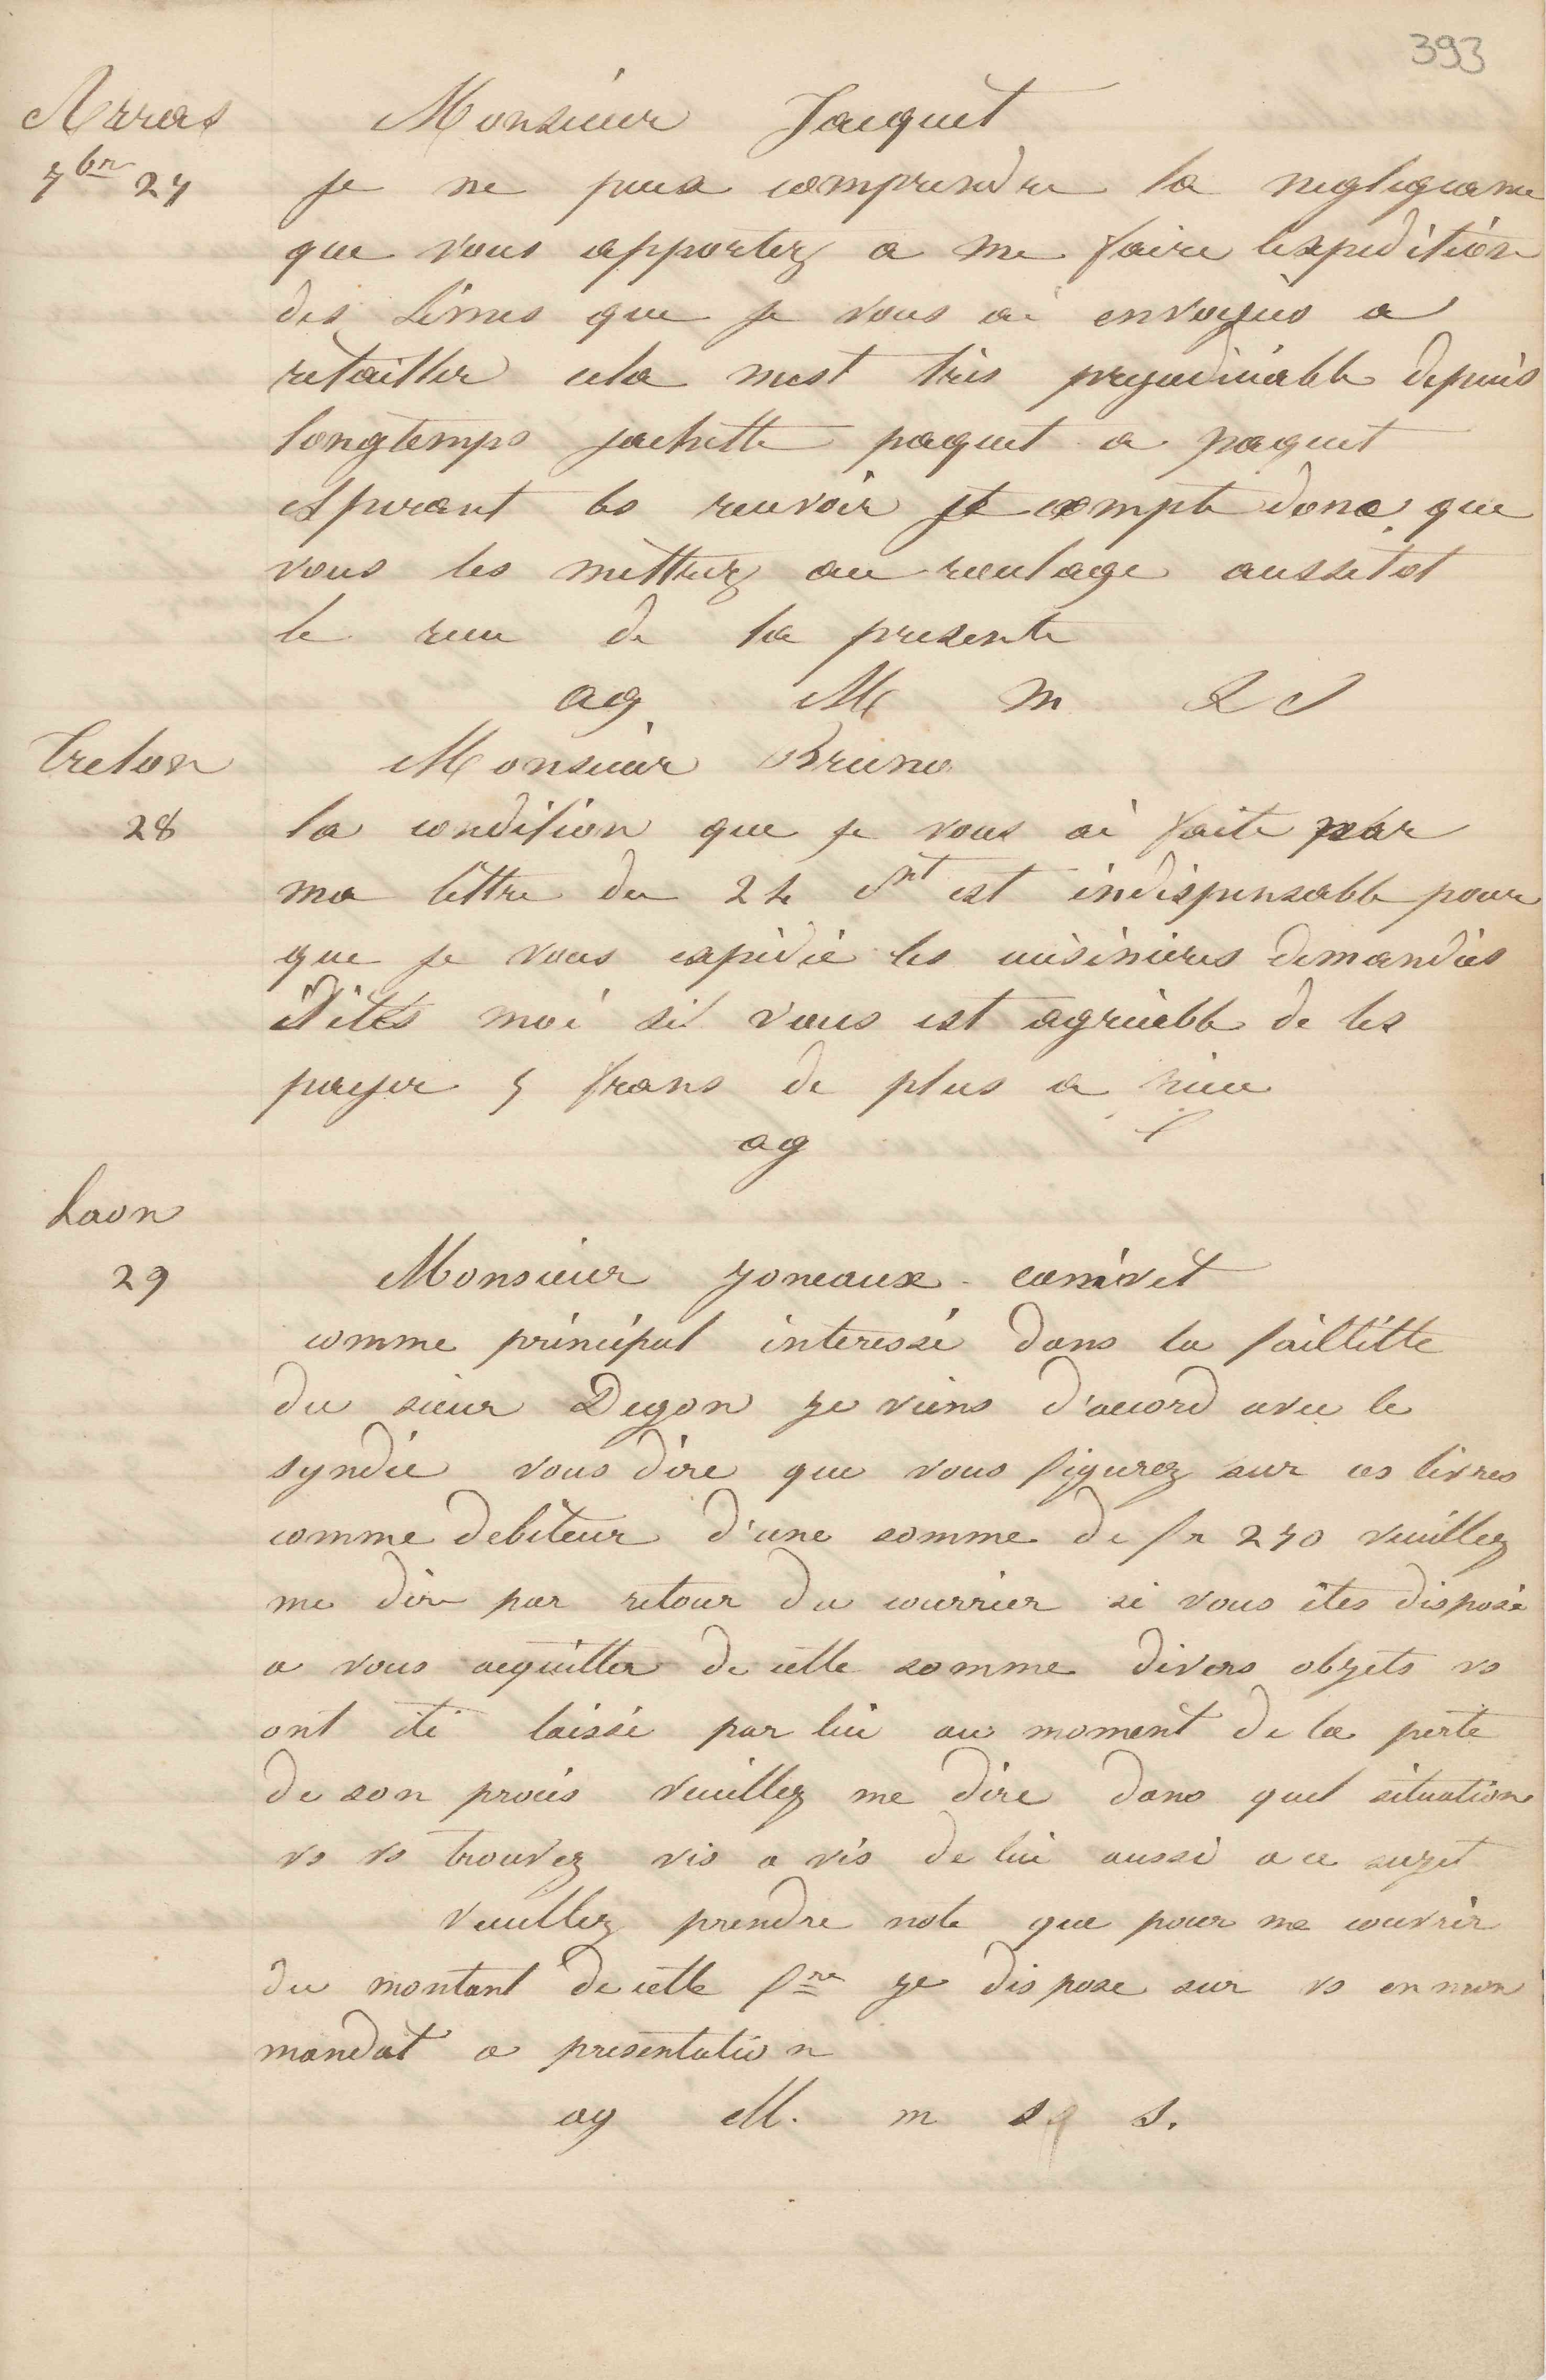 393
Arras
7bre 27
Monsieur Jacquet
je ne peux comprendre la negligeance
que vous apportez a me faire lexpedition
des Limes que je vous ai envoyées a
retailler cela mest très prejudiciable depuis
longtemps jachette paquet a paquet
esperant les recevoir je compte donc que
vous les mettrez au roulage aussitot
le recu de la presente
ag M m S S
Trelon
28
Monsieur Bruno
la condition que je vous ai faite par
ma lettre du 24 ct est indispensable pour
que je vous expidie les cuisinieres demandées
Dites moi sil vous est agreable de les
payer 5 frans de plus a
ag
Laon
29
Monsieur Joneaux canivet
comme principal interessé dans la faillitte
du sieur Degon je viens d'accord avec le
syndic vous dire que vous figurez sur ces livres
comme debiteur d'une somme de fr 270 veuillez
me dire par retour du courrier si vous étes disposé
a vous acquitter de cette somme divers objets vs
ont été laissé par lui au moment de la perte
de son procés veuillez me dire dans quel situation
vs vs trouvez vis a vis de lui aussi a ce sujet
Veuillez prendre note que pour me couvrir
du montant de cette fre je dispose sur vs en mon
mandat a presentation
ag M. m s s.